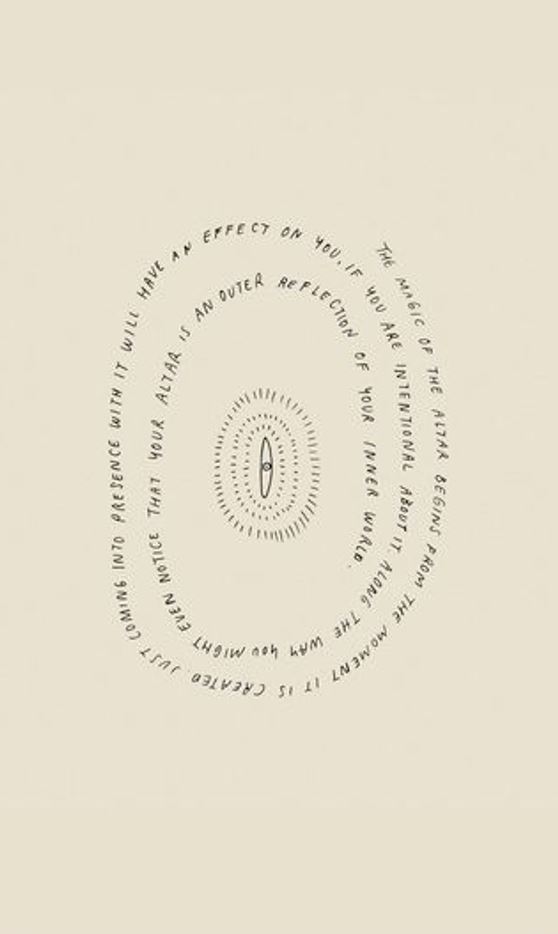 THE MAGIC OF THE ALTAR BEGINS FROM THE MOMENT IT IS CREATED. JUST COMING INTO PRESENCE WITH IT WILL HAVE AN EFFECT ON YOU, IF YOU ARE INTENTIONAL ABOUT IT. ALONG THE WAY YOU MIGHT EVEN NOTICE THAT YOUR ALTAR IS AN OUTER REFLECTION OF YOUR INNER WORLD.